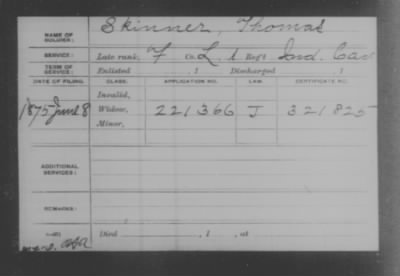 NAME OF SOLDIER: Skinner, Thomas
SERVICE: Late rank, F Co. L, 1 Reg't Ind. Cav
TERM OF SERVICE: Enlisted , 1 Discharged , 1
DATE OF FILING. CLASS. APPLICATION NO. LAW. CERTIFICATE NO.
Invalid,
1875 June 8 Widow, 221366 J 321825
Minor,
ADDITIONAL SERVICES:
REMARKS:
Died , 1 , at